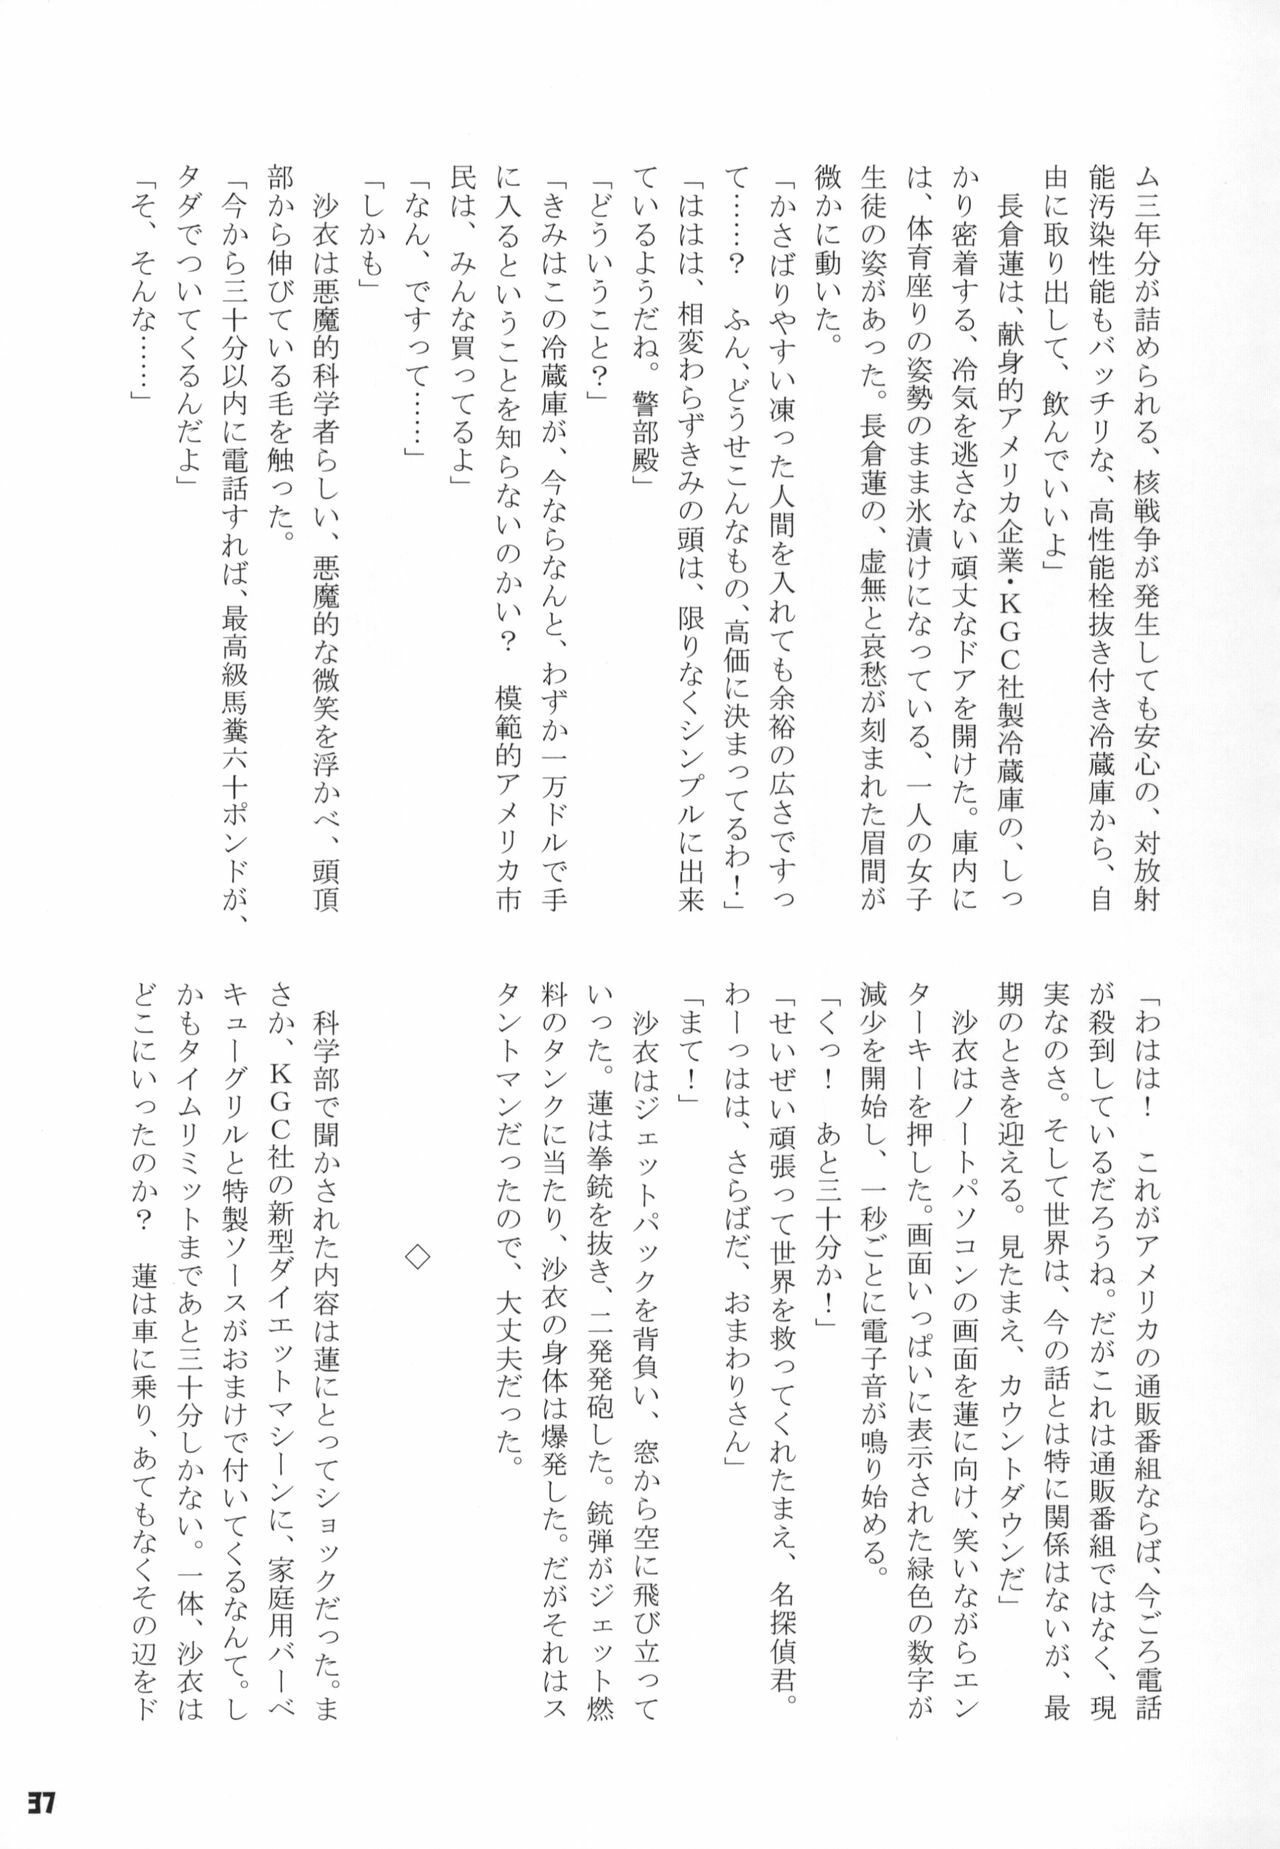 ム三年分が詰められる、核戦争が発生しても安心の、対放射
能汚染性能もバッチリな、高性能栓抜き付き冷蔵庫から、自
由に取り出して、飲んでいいよ」
　長倉蓮は、献身的アメリカ企業・ＫＧＣ社製冷蔵庫の、しっ
かり密着する、冷気を逃さない頑丈なドアを開けた。庫内に
は、体育座りの姿勢のまま氷漬けになっている、一人の女子
生徒の姿があった。長倉蓮の、虚無と哀愁が刻まれた眉間が
微かに動いた。
「かさばりやすい凍った人間を入れても余裕の広さですっ
て……？　ふん、どうせこんなもの、高価に決まってるわ！」
「ははは、相変わらずきみの頭は、限りなくシンプルに出来
ているようだね。警部殿」
「どういうこと？」
「きみはこの冷蔵庫が、今ならなんと、わずか一万ドルで手
に入るということを知らないのかい？　模範的アメリカ市
民は、みんな買ってるよ」
「なん、ですって……」
「しかも」
　沙衣は悪魔的科学者らしい、悪魔的な微笑を浮かべ、頭頂
部から伸びている毛を触った。
「今から三十分以内に電話すれば、最高級馬糞六十ポンドが、
タダでついてくるんだよ」
「そ、そんな……」
「わはは！　これがアメリカの通販番組ならば、今ごろ電話
が殺到しているだろうね。だがこれは通販番組ではなく、現
実なのさ。そして世界は、今の話とは特に関係はないが、最
期のときを迎える。見たまえ、カウントダウンだ」
　沙衣はノートパソコンの画面を蓮に向け、笑いながらエン
ターキーを押した。画面いっぱいに表示された緑色の数字が
減少を開始し、一秒ごとに電子音が鳴り始める。
「くっ！　あと三十分か！」
「せいぜい頑張って世界を救ってくれたまえ、名探偵君。
わーっはは、さらばだ、おまわりさん」
「まて！」
　沙衣はジェットパックを背負い、窓から空に飛び立って
いった。蓮は拳銃を抜き、二発発砲した。銃弾がジェット燃
料のタンクに当たり、沙衣の身体は爆発した。だがそれはス
タントマンだったので、大丈夫だった。
◇
　科学部で聞かされた内容は蓮にとってショックだった。ま
さか、ＫＧＣ社の新型ダイエットマシーンに、家庭用バーベ
キューグリルと特製ソースがおまけで付いてくるなんて。し
かもタイムリミットまであと三十分しかない。一体、沙衣は
どこにいったのか？　蓮は車に乗り、あてもなくその辺をド
37